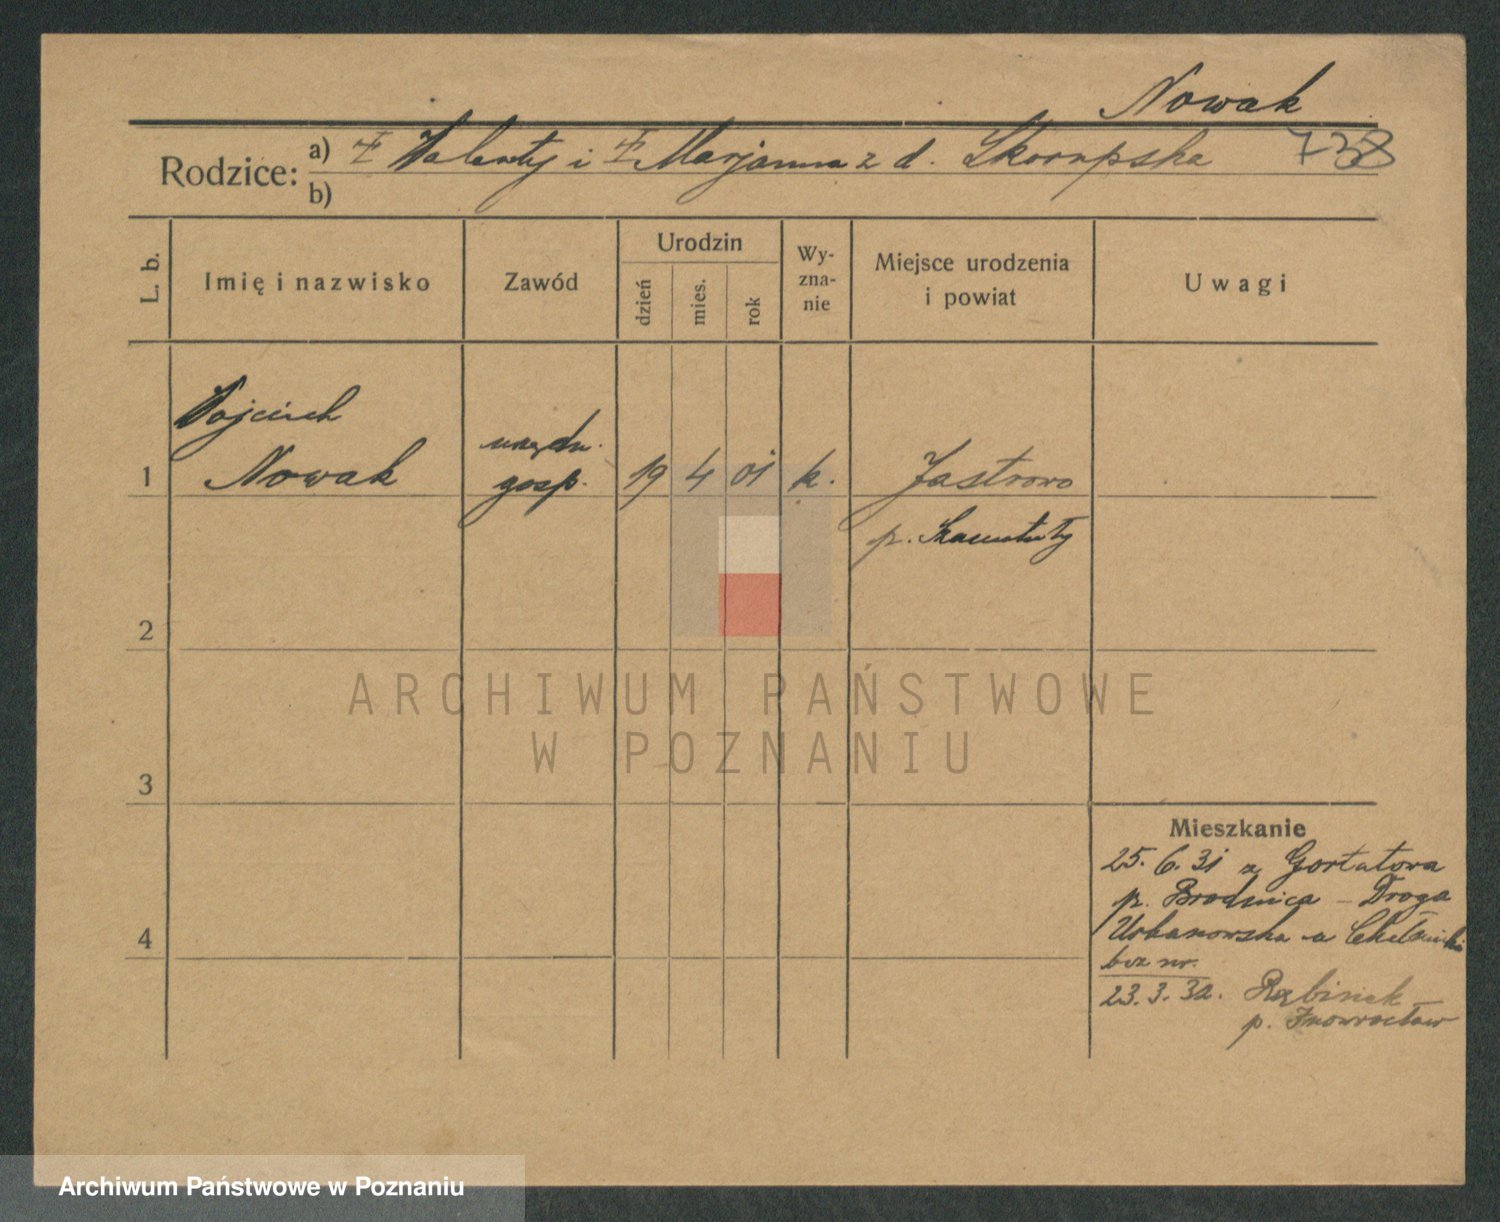 Nowak
738
Rodzice: a) Walenty i Marjanna z d. Skorupska
b)
L. b.
Imię i nazwisko
Zawód
Urodzin
dzień
mies.
rok
Wy-
zna-
nie
Miejsce urodzenia
i powiat
Uwagi
Wojciech
1 Nowak
urzędn.
gosp.
19 4 01 k.
Jastrowo
p. Szamotuły
2
3
4
Mieszkanie
25. 6. 31 z Gortatowa
p. Brodnica - Droga
Urbanowska u
bez nr.
23. 3. 32. Rąbinek
p. Inowrocław
ARCHIWUM PAŃSTWOWE
W POZNANIU
Archiwum Państwowe w Poznaniu